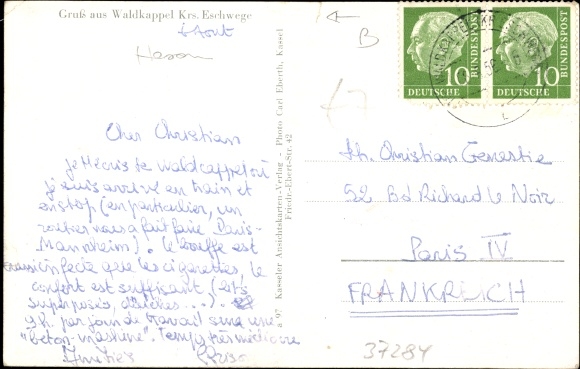 Gruß aus Waldkappel Krs. Eschwege
Aout
B
Cher Christian
je t'écris de Waldcappel où
je suis arrivé en train et
en stop (en particulier, un
routier nous a fait faire Paris-
Mannheim). la bouffe est
infecte que les cigarettes, le
confort est suffisant (lits
superposés, douches...).
9h. par jour de travail sur une
"béton-machine". Temps très médiocre
a 97 Kasseler Ansichtskarten-Verlag - Photo Carl Eberth, Kassel
Friedr.-Ebert-Str. 42
10 DEUTSCHE BUNDESPOST
10 DEUTSCHE BUNDESPOST
Christian Genestie
52 Bd Richard le Noir
Paris IV
FRANKREICH
37284